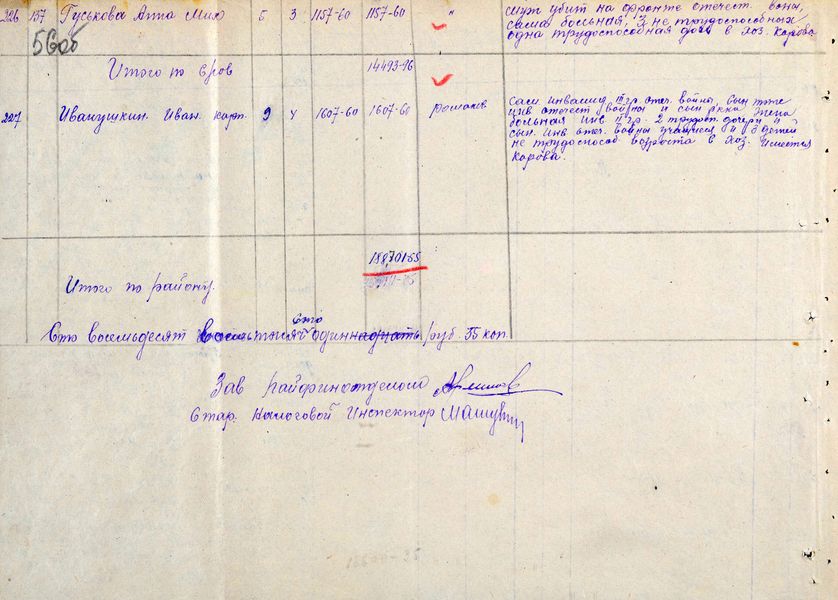 226 137 Гуськова Анна Мих 5 3 1157-60 1157-60 " муж убит на фронте отечест. войны,
сама больная, 3 не трудоспособных
одна трудоспособная дочь в хоз. корова
Итого по 14493-96
227 Иванушкин. Иван. карп. 9 4 1607-60 1607-60 сам инвалид III гр. отеч. война, сын тоже
инв отечест войны и сын ркка жена
больная инв II гр. 2 трудосп. дочери и
сын. инв отеч. войны учащиеся и детей
не трудоспособ возроста в хоз. имеется
Корова.
188701 55
Итого по району.
Сто
Сто восемьдесят восемь тысяч одиннадцать руб. 55 коп.
Зав райфинотделом
Стар. налоговой Инспектор Машу